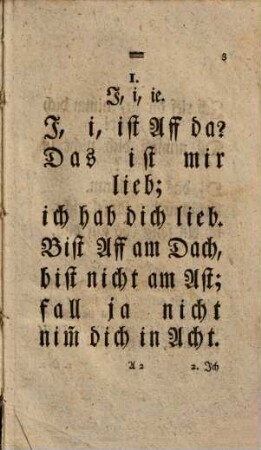 = 3
1.
I, i, ie.
I, i, ist Aff da?
Das ist mir
lieb;
ich hab dich lieb.
Bist Aff am Dach,
bist nicht am Ast;
fall ja nicht
nim̄ dich in Acht.
A 2 2. Ich